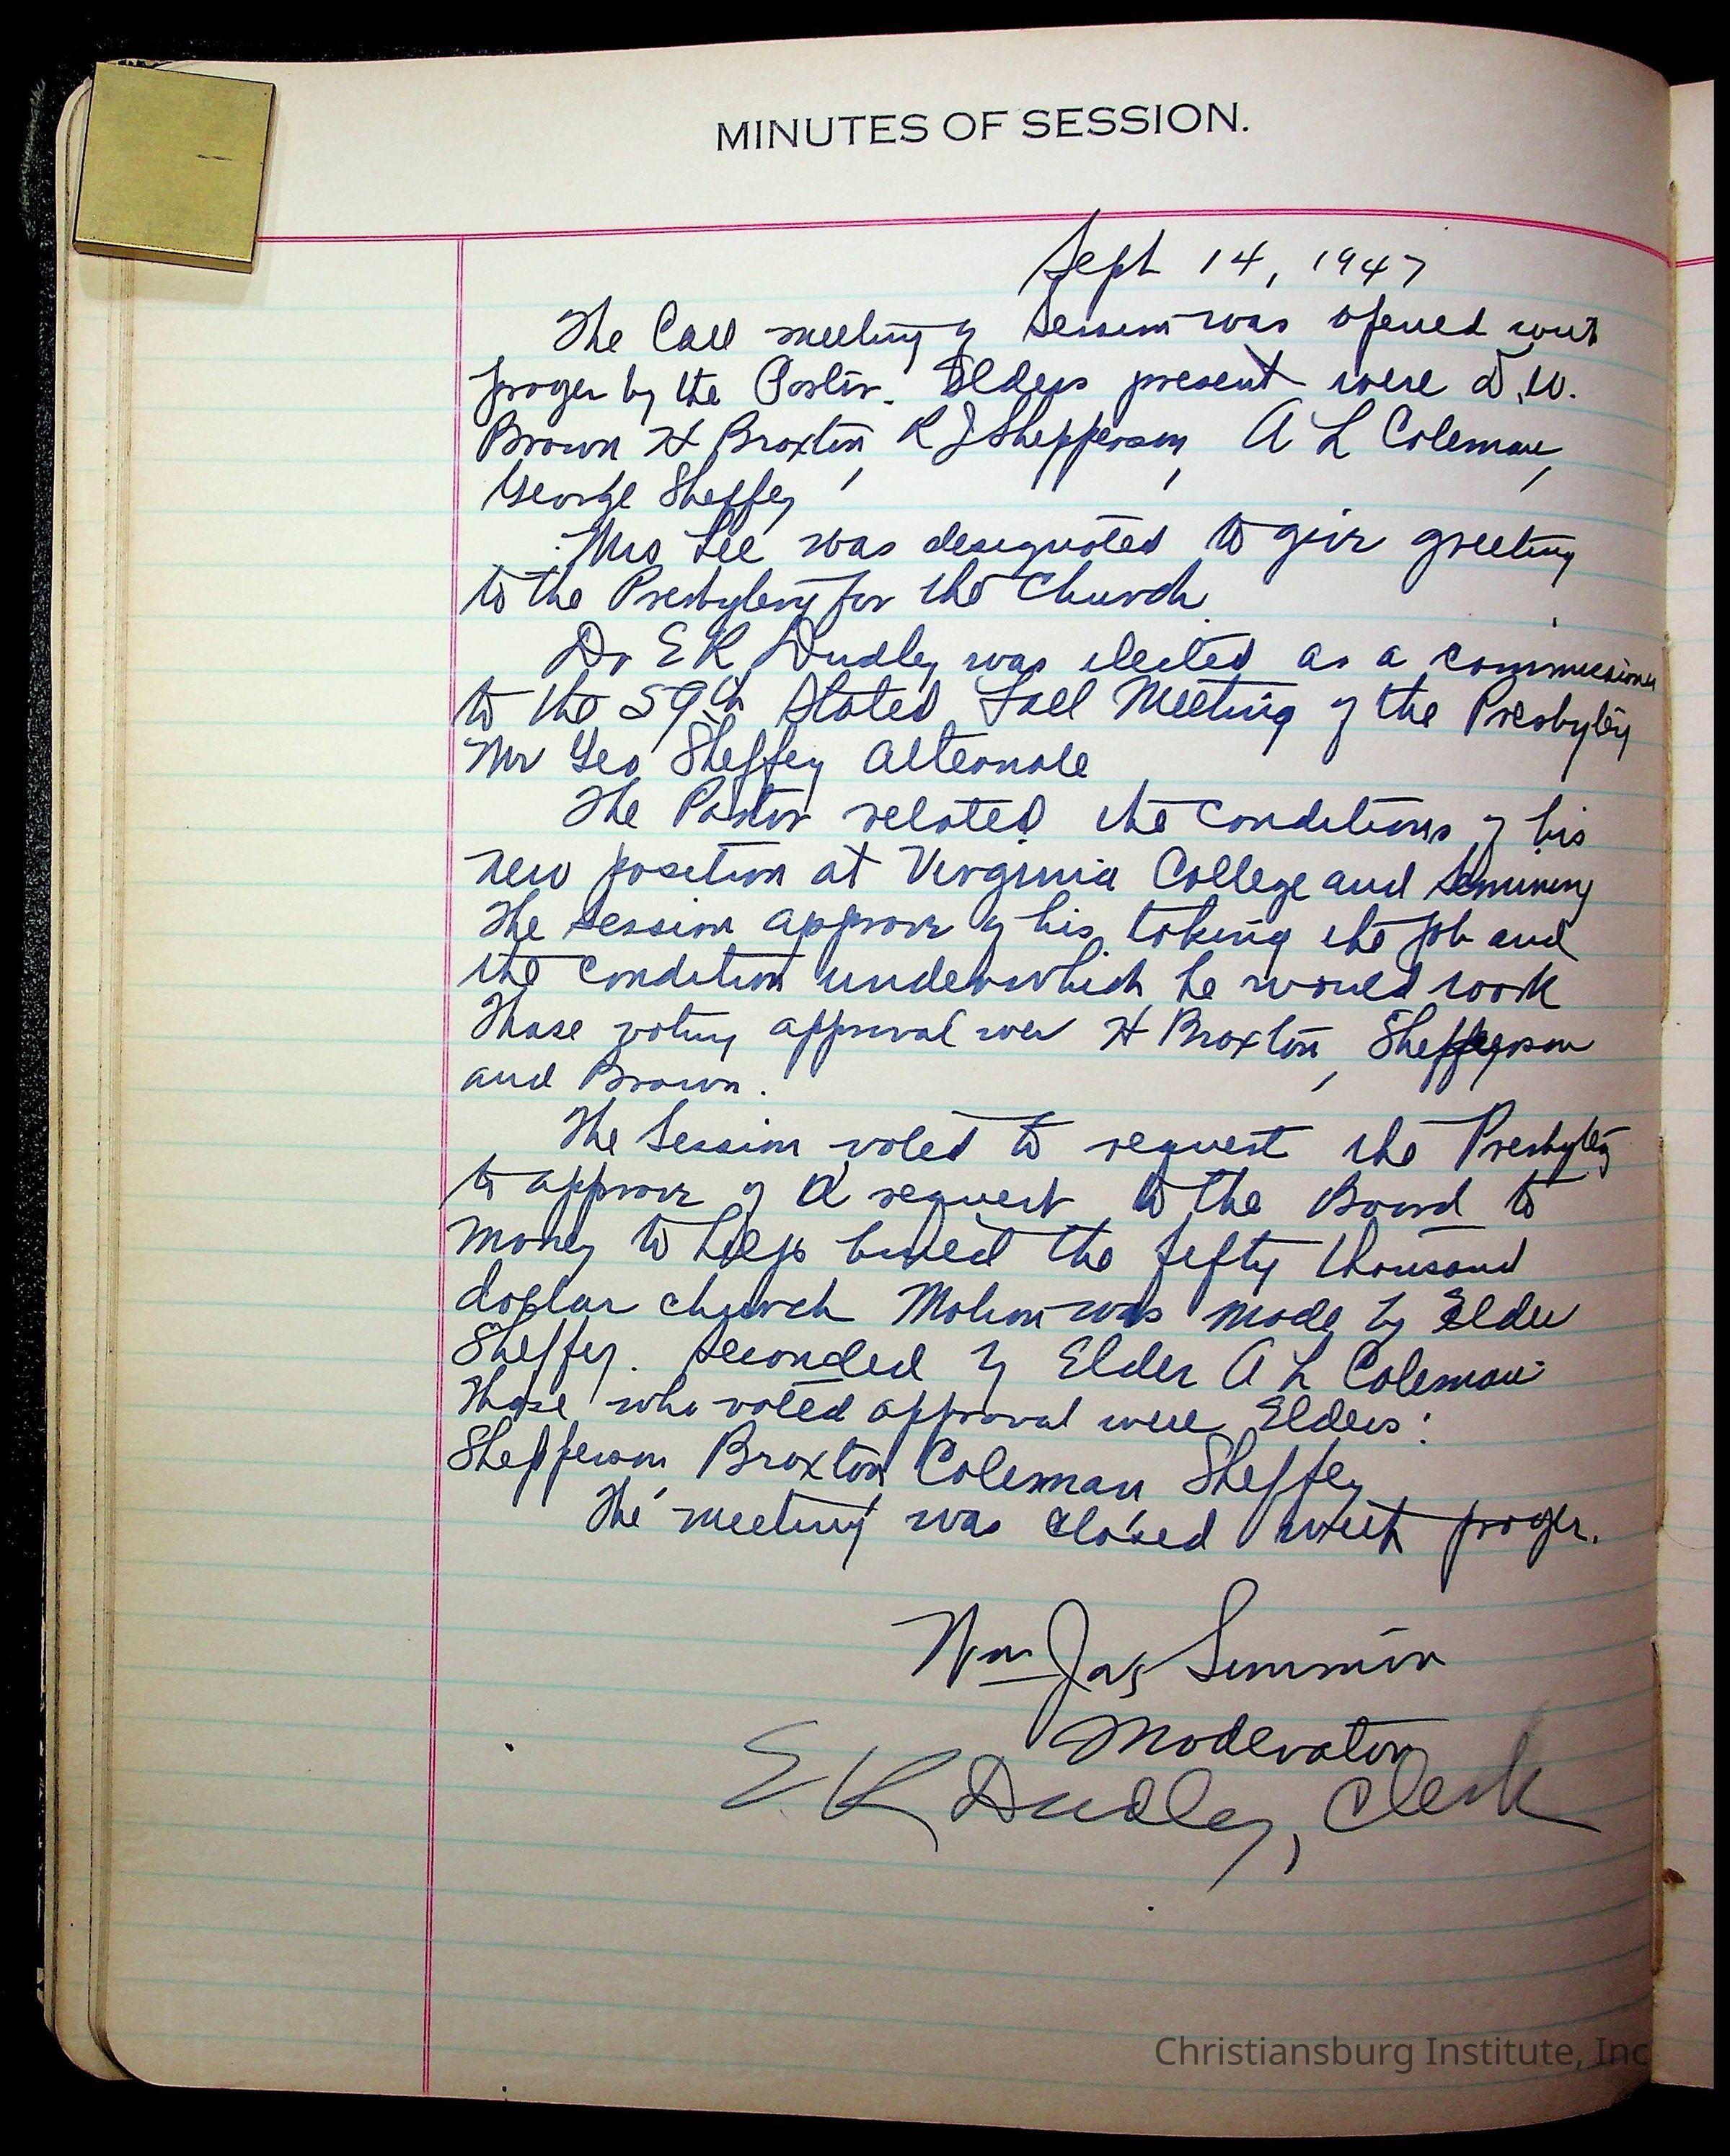 MINUTES OF SESSION.
Sept 14, 1947
The Call meeting of Session was opened with
prayer by the Pastor. Elders present were D.W.
Brown H Braxton, R J Shepperson, A L Coleman,
George Sheffey
Mrs Lee was designated to give greeting
to the Presbytery for the Church.
Dr E R Dudley was elected as a commissioner
to the 59th Stated Fall Meeting of the Presbytery
Mr Geo Sheffey Alternate
The Pastor related the conditions of his
new position at Virginia College and Seminary
The session approve of his taking the job and
the condition underwhich he would work
Those voting approval were H Braxton, Shepperson
and Brown.
The Session voted to request the Presbytery
to approve of a request to the Board to
money to help build the fifty thousand
dollar church Motion was made by Elder
Sheffey. Seconded by Elder A L Coleman
Those who voted approval were Elders:
Shepperson, Braxton, Coleman Sheffey
The meeting was closed with prayer.
Wm Jas Simmons
Moderator
E R Dudley, Clerk
Christiansburg Institute, Inc